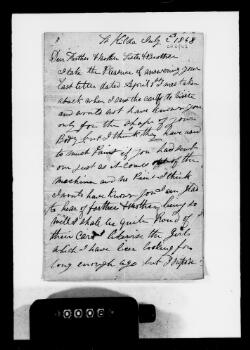 St Kilda July 2d 1868
Dear Father & Mother Sister & Brother
I take the Pleasure of answering your
Last letter dated April 1st I was taken
aback when I saw the carte
and would not have known you
only for the shape of your
Body but I think they have used
to much Paint if you had sent
one just as it come of the
machine and no Paint I think
I would have known you I am glad
to hear of farther & mother being so
well I shall be quite Proud of
their Card Likewise the Girls
which I have been looking for
long enough ago but I